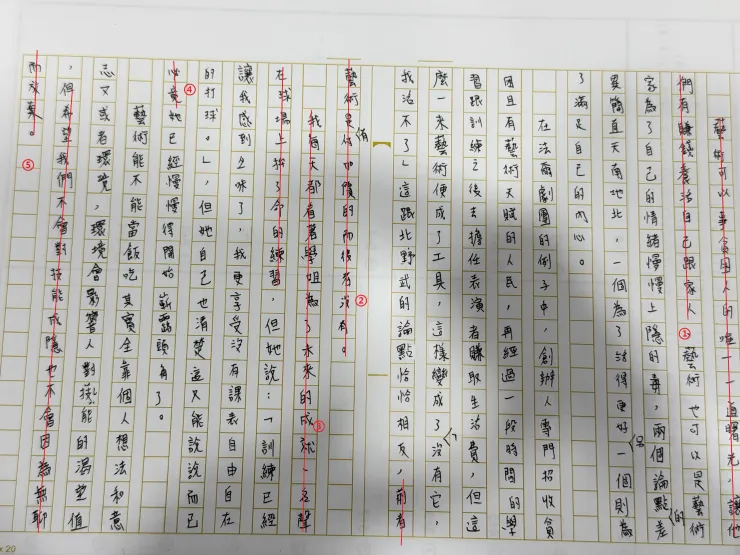 藝術可以事貧困人的唯一一道曙光，讓他
們有賺錢養活自己跟家人①藝術也可以是藝術
家為了自己的情緒慢慢上隱的毒，兩個論點差的
異簡直天南地北，一個為了活得更好一個則為
了滿足自己的內心。
在法爾劇團的例子中，創辦人專門招收貧
困且有藝術天賦的人民，再經過一段時間的學
習跟訓練之後去擔任表演者賺取生活費，但這
麼一來藝術便成了工具，這樣變成了沒有它，
我活不了」這跟北野武的論點恰恰相反，前者
藝術是有加價的而後者沒有。②
我每天都看著學姐為了未來的成就
在球場上拚了命的練習，但她說：「訓練已經
讓我感到乏味了，我更享受沒有課表自由自在
的打球。」，但她自己也清楚這又能說說而已
④心竟她已經慢慢得開始嶄露頭角了。
藝術能不能當飯吃其實全靠個人想法和意
志又或者環境，環境會影響人對技能的渴望值
，但希望我們不會對技能成隱也不會因為無聊
而放棄。⑤